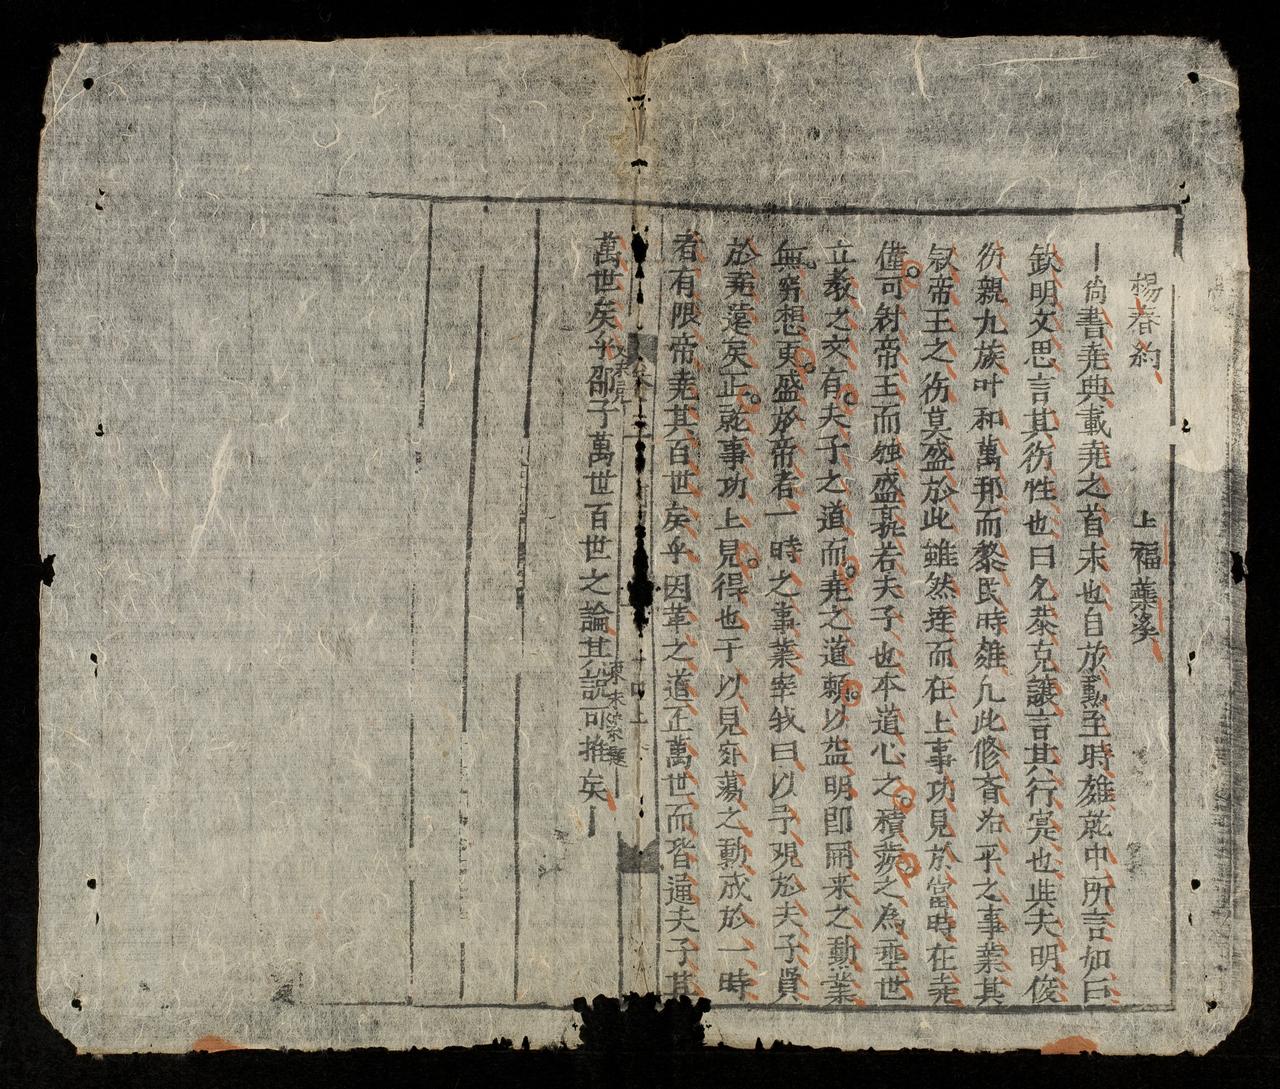 楊春約 上福葉溪
尚書堯典載堯之首末也自放勳至時雍乾中所言如曰
欽明文思言其衍性也曰允恭克讓言其行实也與夫明俊
衍親九族叶和萬邦而黎民時雍凢此修斉治平之事業其
叙帝王之衍莫盛於此雖然達而在上事功見於當時在堯
僅可創帝王而独盛孰若夫子也本道心之積蘊之為垂世
立教之文有夫子之道而堯之道頼以益明即開来之勳業
無窮想更盛於帝者一時之事業宰我曰以予观於夫子賢
於堯遠矣正就事功上見得也于以見弥蕩之勳成於一時
者有限帝堯其百世矣乎因革之道正萬世而皆通夫子其
萬世矣乎邵子萬世百世之論其說可推矣
十四上